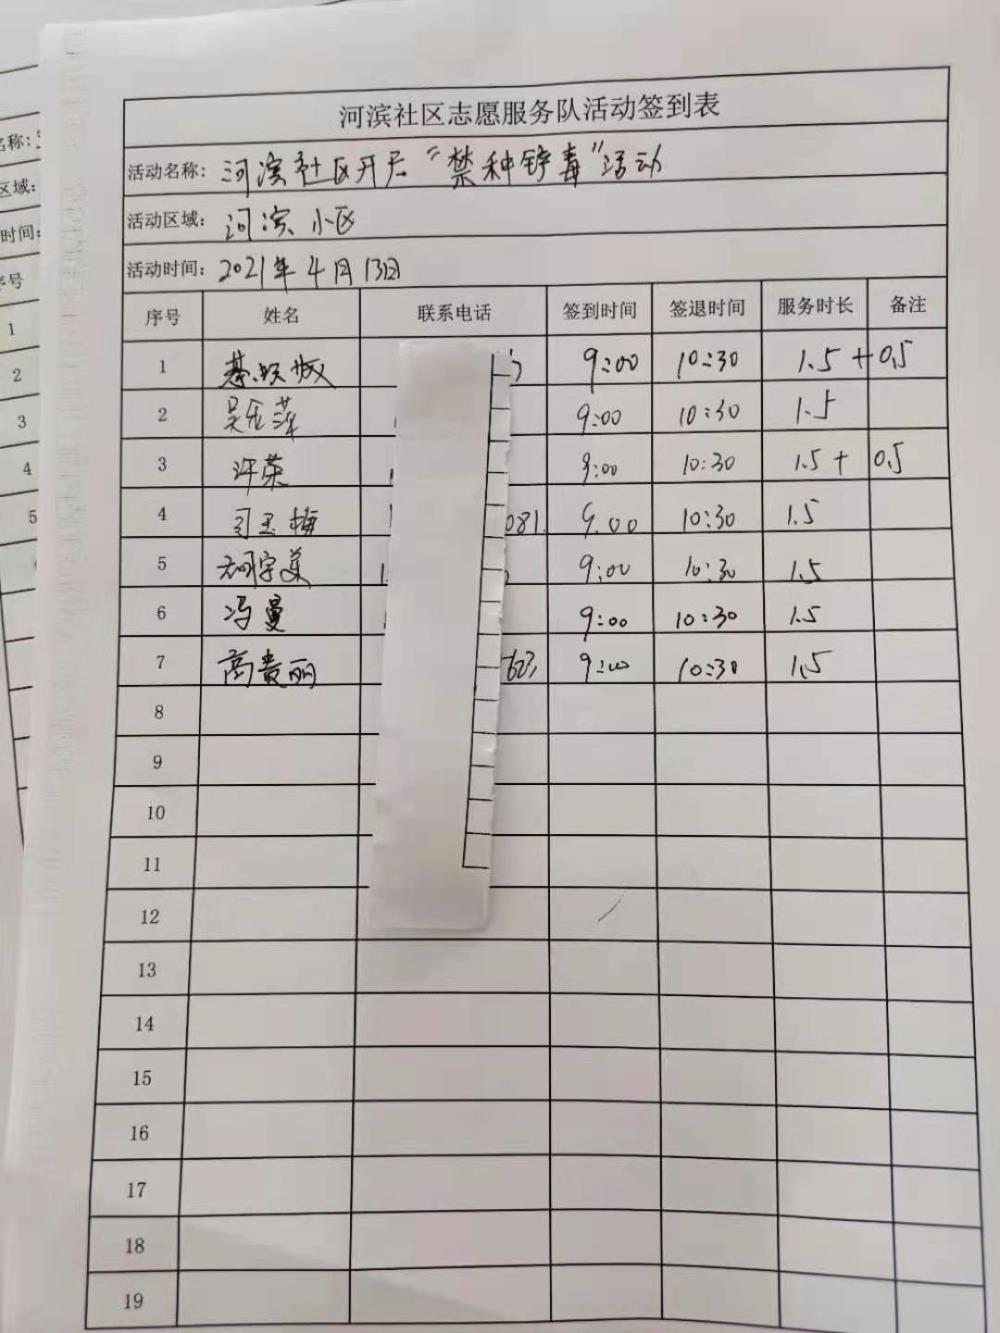 河滨社区志愿服务队活动签到表
活动名称: 河滨社区开展“禁种铲毒”活动
活动区域: 河滨小区
活动时间: 2021年4月13日
序号 姓名 联系电话 签到时间 签退时间 服务时长 备注
1 9:00 10:30 1.5 + 0.5
2 9:00 10:30 1.5
3 许荣 9:00 10:30 1.5 + 0.5
4 司玉梅 081. 9:00 10:30 1.5
5 9:00 10:30 1.5
6 冯曼 9:00 10:30 1.5
7 高贵丽 623 9:00 10:30 1.5
8
9
10
11
12
13
14
15
16
17
18
19
名称:
区域:
时间:
序号
1
2
3
4
5